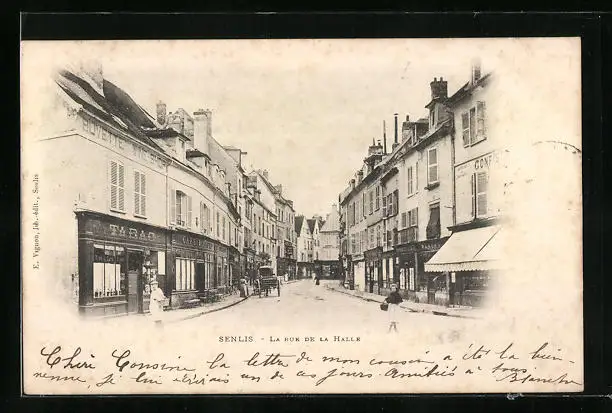 BUVETTE
TABAC
CAFE
E. Vignon, lib.-édit., Senlis
SENLIS - LA RUE DE LA HALLE
Chère Cousine la lettre de mon cousin a été la bien-
venue, je lui écrirais un de ces jours. Amitiés à tous
Blanche